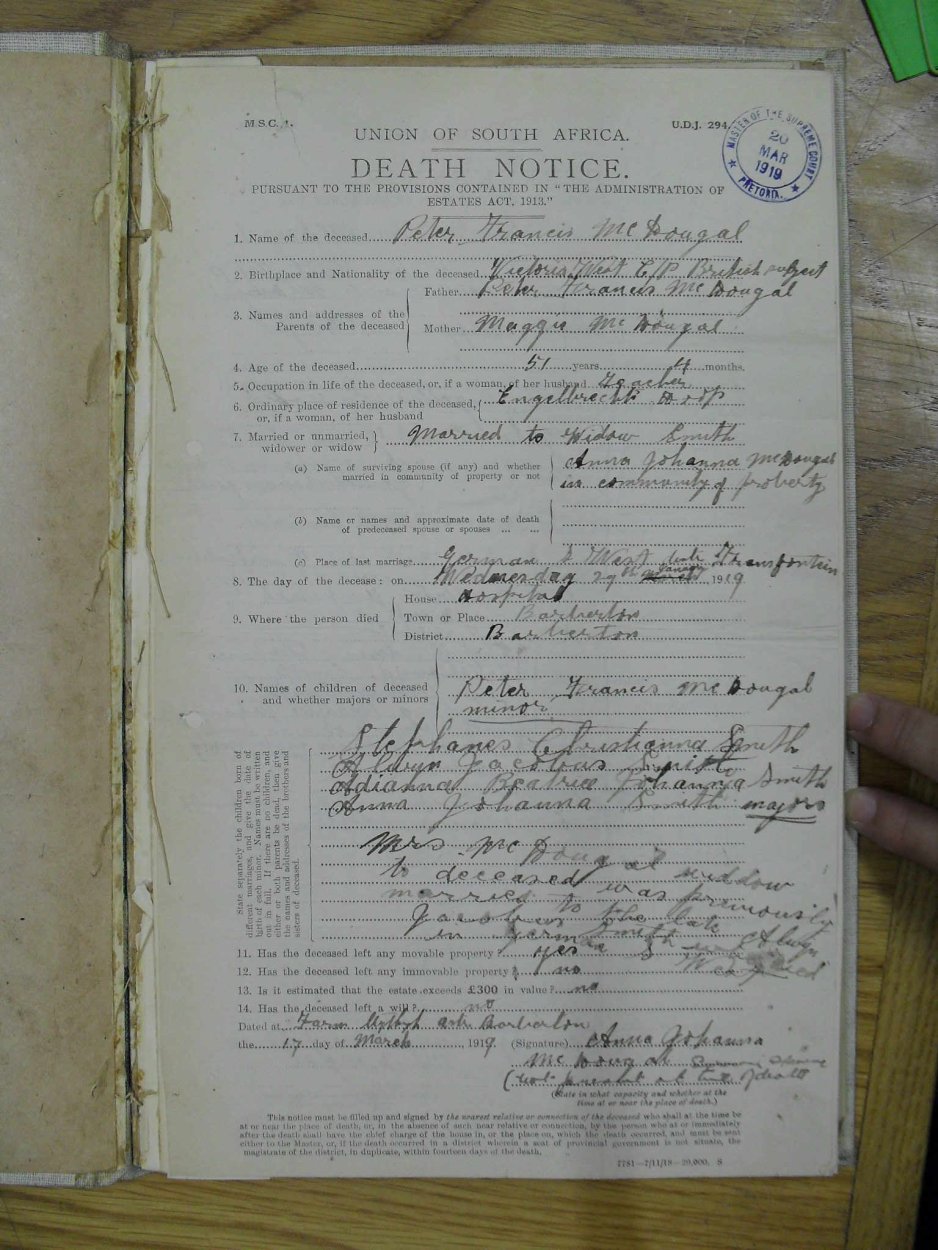 M.S.C. 1.
U.D.J. 294.
MASTER OF THE SUPREME COURT
20
MAR
1919
PRETORIA.
UNION OF SOUTH AFRICA.
DEATH NOTICE.
PURSUANT TO THE PROVISIONS CONTAINED IN "THE ADMINISTRATION OF
ESTATES ACT, 1913."
1. Name of the deceased Peter Francis McDougal
2. Birthplace and Nationality of the deceased Victoria West C/P British subject
3. Names and addresses of the Parents of the deceased
Father Peter Francis McDougal
Mother Maggie McDougal
4. Age of the deceased 51 years 4 months.
5. Occupation in life of the deceased, or, if a woman, of her husband Teacher
6. Ordinary place of residence of the deceased, or, if a woman, of her husband Engelbrecht's Drift
7. Married or unmarried, widower or widow Married to Widow Smith
(a) Name of surviving spouse (if any) and whether married in community of property or not
Anna Johanna McDougal
in community of property
(b) Name or names and approximate date of death
of predeceased spouse or spouses ... ...
(c) Place of last marriage German S West
8. The day of the decease: on Wednesday 29th January 1919
9. Where the person died
House Hospital
Town or Place Barberton
District Barberton
10. Names of children of deceased and whether majors or minors
Peter Francis McDougal
minor
State separately the children born of
different marriages, and give the date of
birth of each minor. Names must be written
out in full. If there are no children, and
either or both parents be dead, then give
the names and addresses of the brothers and
sisters of deceased.
Stephanes Christianna Smith
Alwyn Jacobus Smith
Adrianna Beatrice Johanna Smith
Anna Johanna Smith majors
Mrs. McDougal widow
to deceased was previously
married to the late
Jacobus Smith
in German S W
11. Has the deceased left any movable property? yes
12. Has the deceased left any immovable property? no
13. Is it estimated that the estate exceeds £300 in value? no
14. Has the deceased left a will? no
Dated at Farm Barberton
the 17 day of March, 1919. (Signature) Anna Johanna
McDougal Surviving Spouse
(not present at time of death
(State in what capacity and whether at the
time at or near the place of death.)
This notice must be filled up and signed by the nearest relative or connection of the deceased who shall at the time be
at or near the place of death, or, in the absence of such near relative or connection, by the person who at or immediately
after the death shall have the chief charge of the house in, or the place on, which the death occurred, and must be sent
either to the Master, or, if the death occurred in a district wherein a seat of provincial government is not situate, the
magistrate of the district, in duplicate, within fourteen days of the death.
1781—7/11/18—20,000. S